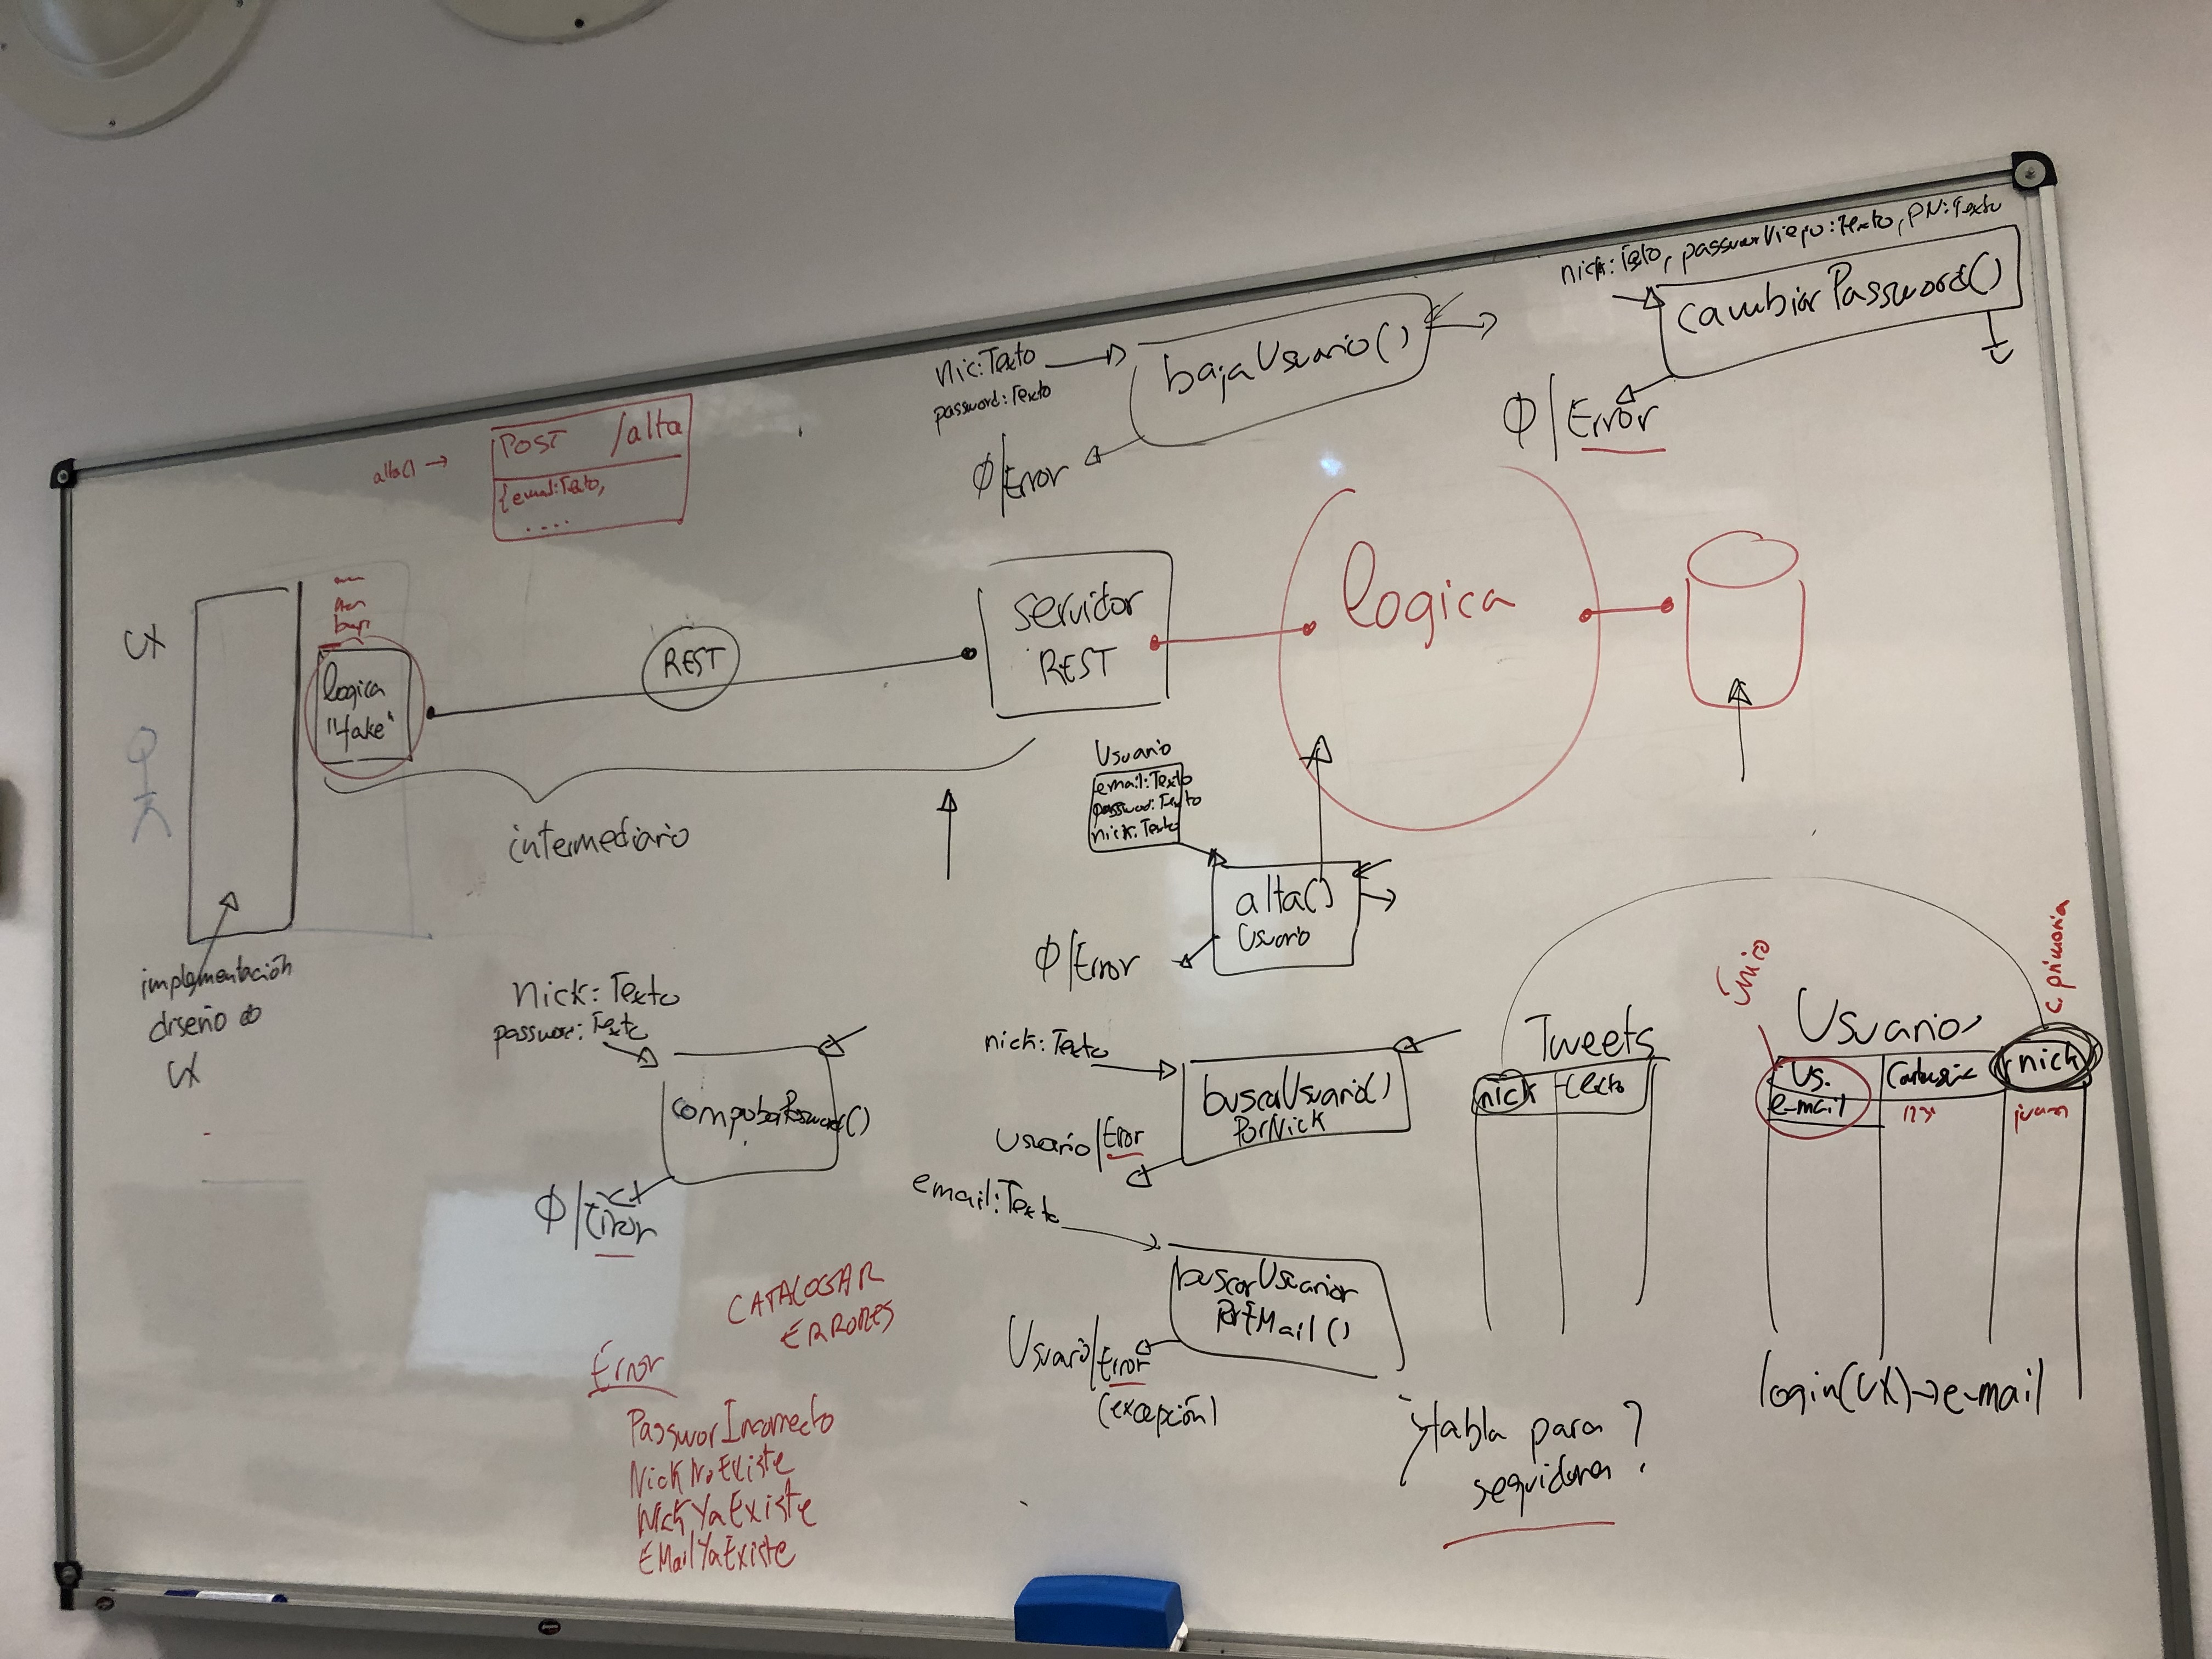 nick:Texto, passworViejo:Texto, PN:Texto
cambiarPassword()
Ø/Error
nic:Texto
password:Texto
bajaUsuario()
Ø/Error
alta() →
POST /alta
{email:Texto,
....
UX
logica
"fake"
REST
servidor
REST
logica
intermediario
implementación
diseño
UX
Usuario
email:Texto
password:Texto
nick:Texto
alta()
Usuario
Ø/Error
Nick:Texto
password:Texto
comprobarPassword()
Ø/Error
nick:Texto
buscarUsuario()
PorNick
Usuario/Error
email:Texto
buscarUsuarior
PorEMail()
Usuario/Error
(excepción)
CATALOGAR
ERRORES
Error
PassworIncorrecto
NickNoExiste
NickYaExiste
EMailYaExiste
Tweets
nick texto
Único
c. primaria
Usuario
Us. nick
e-mail juan
login(UX)→e-mail
¿tabla para
seguidores?